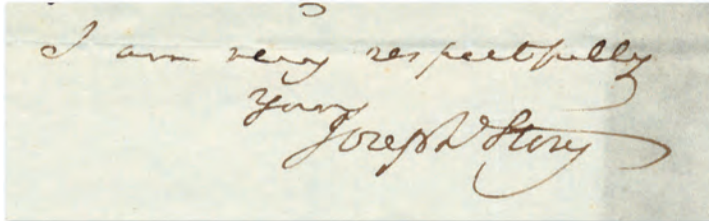 I am very respectfully
Yours
Joseph Story